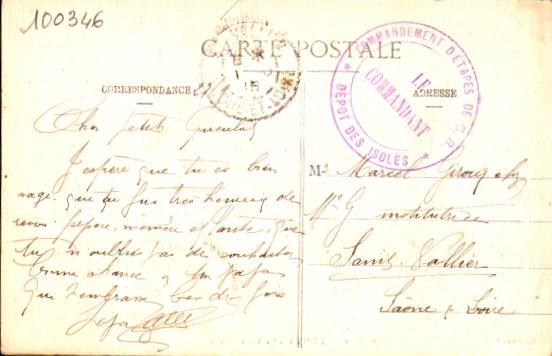 100346
CARTE POSTALE
COMMANDEMENT D'ETAPES DE G.R.
DÉPÔT DES ISOLÉS
LE
COMMANDANT
CORRESPONDANCE
ADRESSE
Cher petit
J'espère que tu es bien
sage, que tu fus très heureux de
revoir pépère, mémère et tante, que
tu n'oublies pas de souhaiter
bonne chance à ton papa
que t'embrasse bien des fois
Mr Marcel
institutrice
Saint Vallier
Saône & Loire